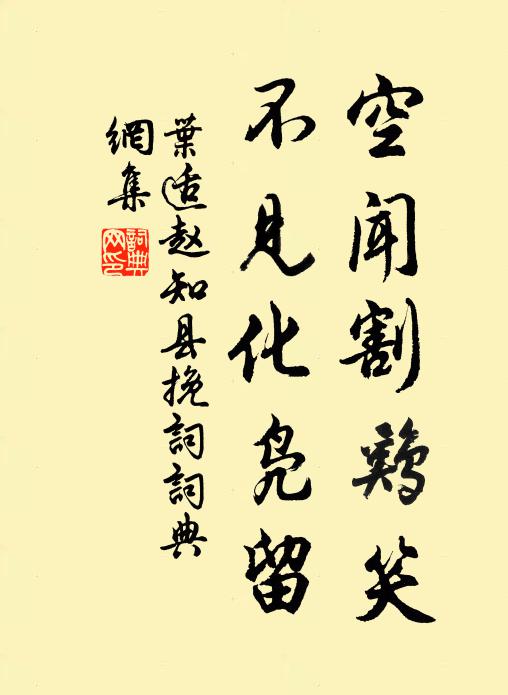 空闻割鸡笑
不见化凫留
葉适赵知县挽詞詞典
網集
詞典网印